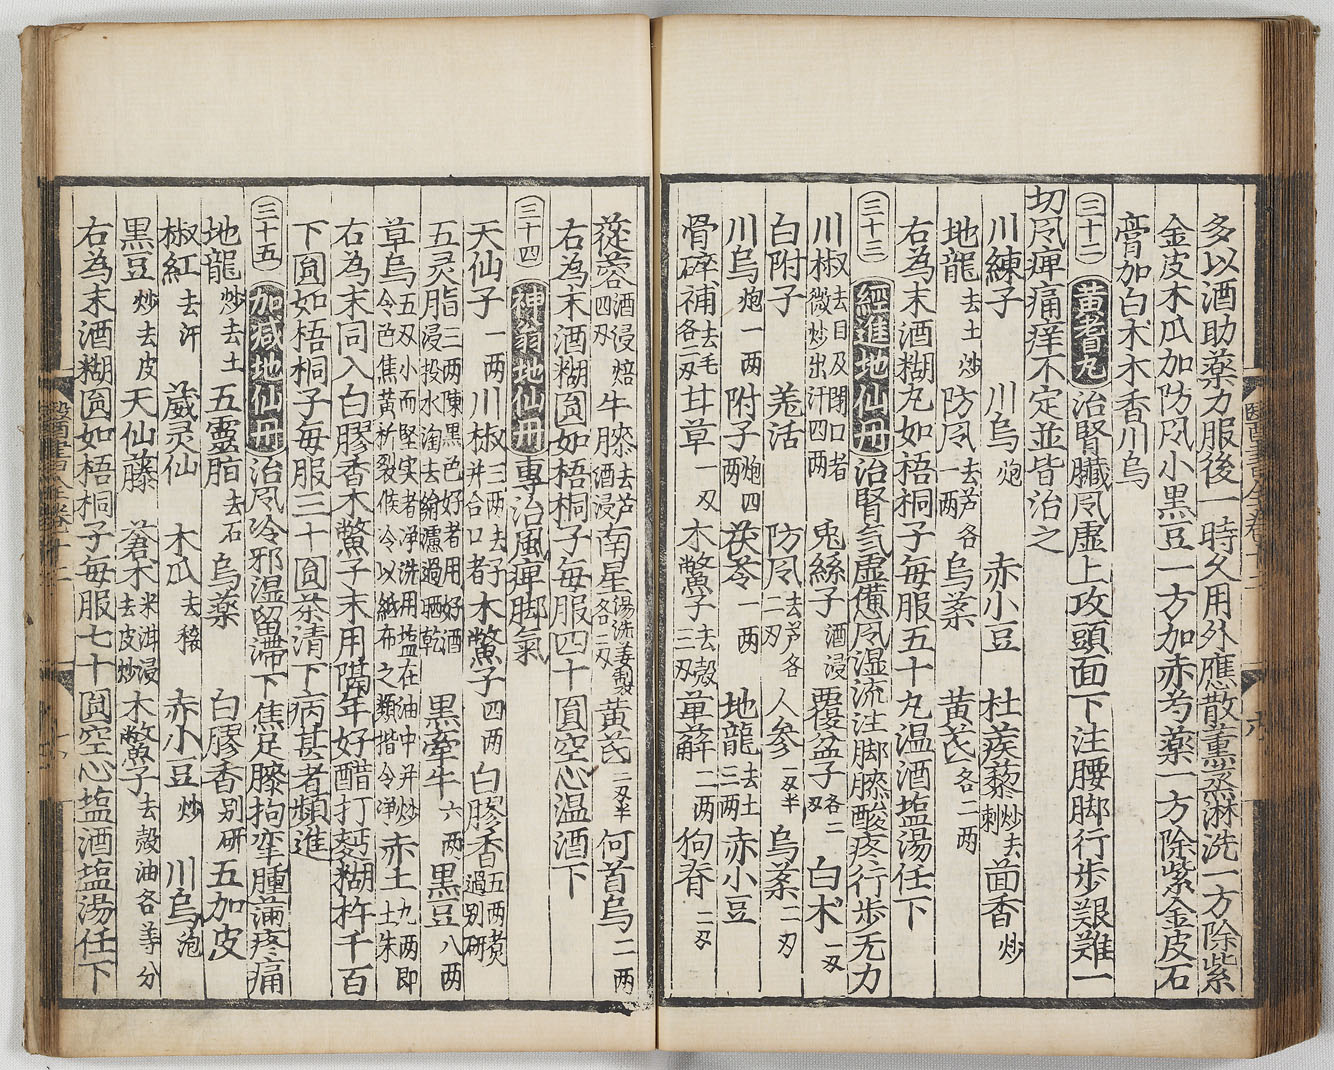 多以酒助藥力服後一時久用外應散薰蒸淋洗一方除紫
金皮木瓜加防风小黒豆一方加赤芍藥一方除紫金皮石
膏加白朮木香川烏
三十二 黄耆丸 治腎臟风虚上攻頭面下注腰脚行歩艱難一
切风痺痛痒不定並皆治之
川練子 川烏炮 赤小豆 杜蒺藜炒去刺 茴香炒
地龍去土炒 防风去芦各一两 烏藥 黄芪各二两
右為末酒糊丸如梧桐子毎服五十丸温酒塩湯任下
三十三 經進地仙丹 治腎氣虚憊风湿流注脚膝酸疼行歩无力
川椒去目及閉口者微炒出汗四两 兎絲子酒浸 覆盆子各二刄 白朮一刄
白附子 羗活 防风去芦各二刄 人參一刄半 烏藥二刄
川烏炮一两 附子炮四两 茯苓一两 地龍去土三两 赤小豆
骨碎補去毛各二刄 甘草一刄 木鱉子去殼三刄 萆薢二两 狗脊二刄
蓯蓉酒浸焙四刄 牛膝去芦酒浸 南星湯洗姜製各二刄 黄芪二刄半 何首烏二两
右為末酒糊圎如梧桐子毎服四十圎空心温酒下
三十四 神翁地仙丹 專治風痺脚氣
天仙子一两 川椒三两去子并合口者 木鱉子四两 白膠香五两煑過别研
五灵脂三两陳黒色好者用好酒浸投水淘去給濾過晒乾 黒牽牛六两 黒豆八两
草烏五刄小而堅实者净洗用塩在油中并炒令色焦黄析裂候冷以紙布之類揩令净 赤土九两即土朱
右為末同入白膠香木鱉子末用隔年好醋打麪糊杵千百
下圎如梧桐子毎服三十圎茶清下病甚者頻進
三十五 加减地仙丹 治风冷邪温留滯下焦足膝拘挛腫滿疼痛
地龍炒去土 五靈脂去石 烏藥 白膠香别研 五加皮
椒紅去汗 葳灵仙 木瓜去穣 赤小豆炒 川烏炮
黒豆炒去皮 天仙藤 蒼朮米泔浸去皮炒 木鱉子去殼油各等分
右為末酒糊圎如梧桐子毎服七十圎空心塩酒塩湯任下